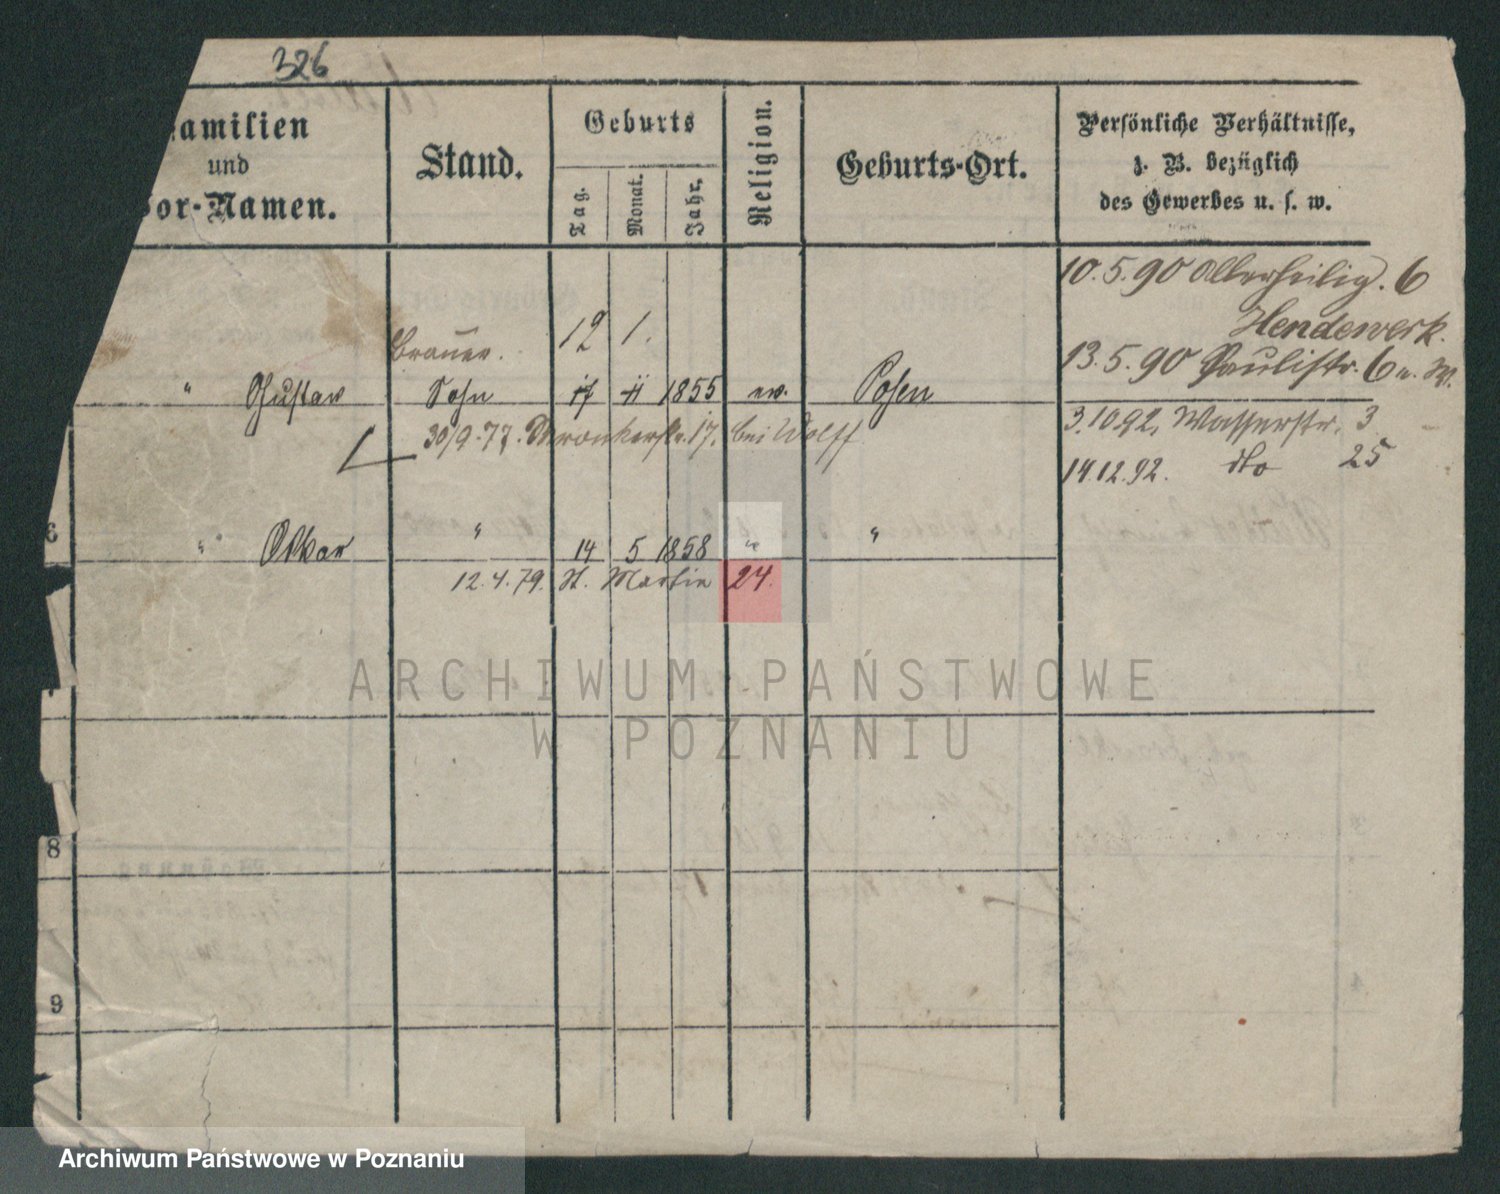 326
Familien
und
Vor-Namen.
Stand.
Geburts
Tag.
Monat.
Jahr.
Religion.
Geburts-Ort.
Persönliche Verhältnisse,
z. B. bezüglich
des Gewerbes u. s. w.
10.5.90 Allerheilig. 6
Hendewerk.
13.5.90 Paulistr. 6 u. W.
Brauer. 12 1.
" Gustav Sohn 17 11 1855 ev. Posen
30/9.77. Wronkerstr. 17. bei Wolff
3.10.92. Wasserstr. 3
14.12.92. dto 25
6 " Oskar " 14 5 1858 " "
12.4.79. St. Martin 24.
8
9
ARCHIWUM PAŃSTWOWE
W POZNANIU
Archiwum Państwowe w Poznaniu